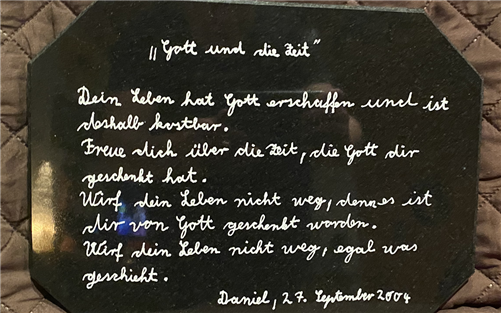 „Gott und die Zeit"
Dein Leben hat Gott erschaffen und ist
deshalb kostbar.
Freue dich über die Zeit, die Gott dir
geschenkt hat.
Wirf dein Leben nicht weg, denn es ist
dir von Gott geschenkt worden.
Wirf dein Leben nicht weg, egal was
geschieht.
Daniel, 27. September 2004